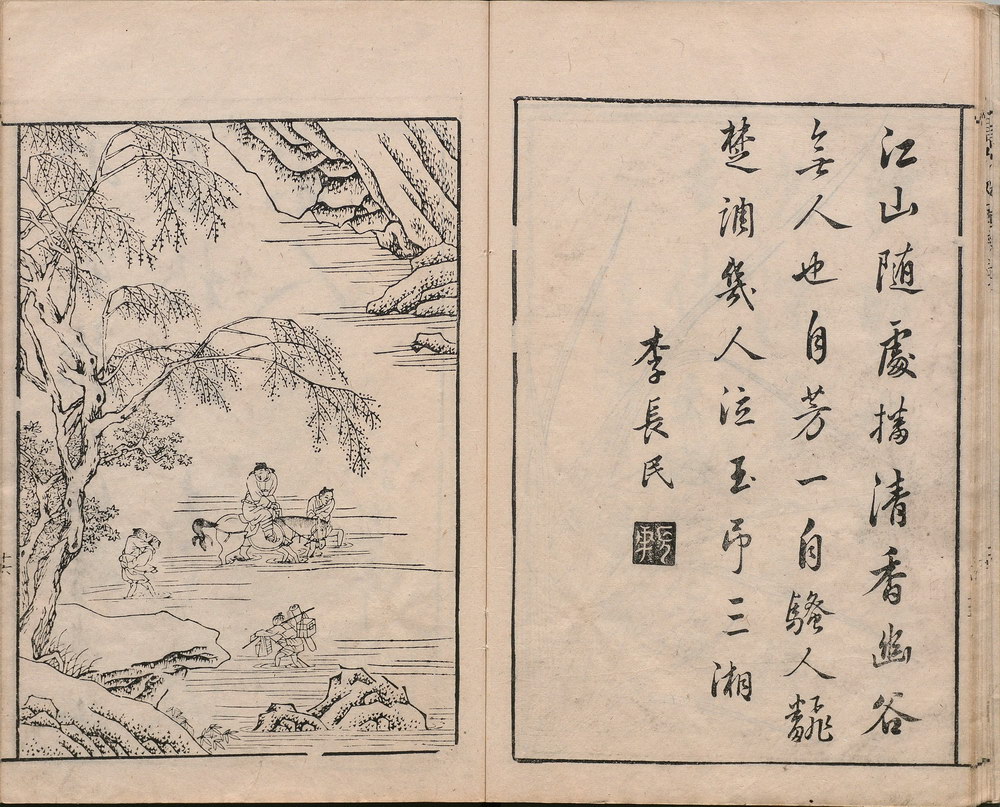 江山随處播清香幽谷
無人也自芳一自騷人翻
楚調幾人泣玉弔三湘
李長民